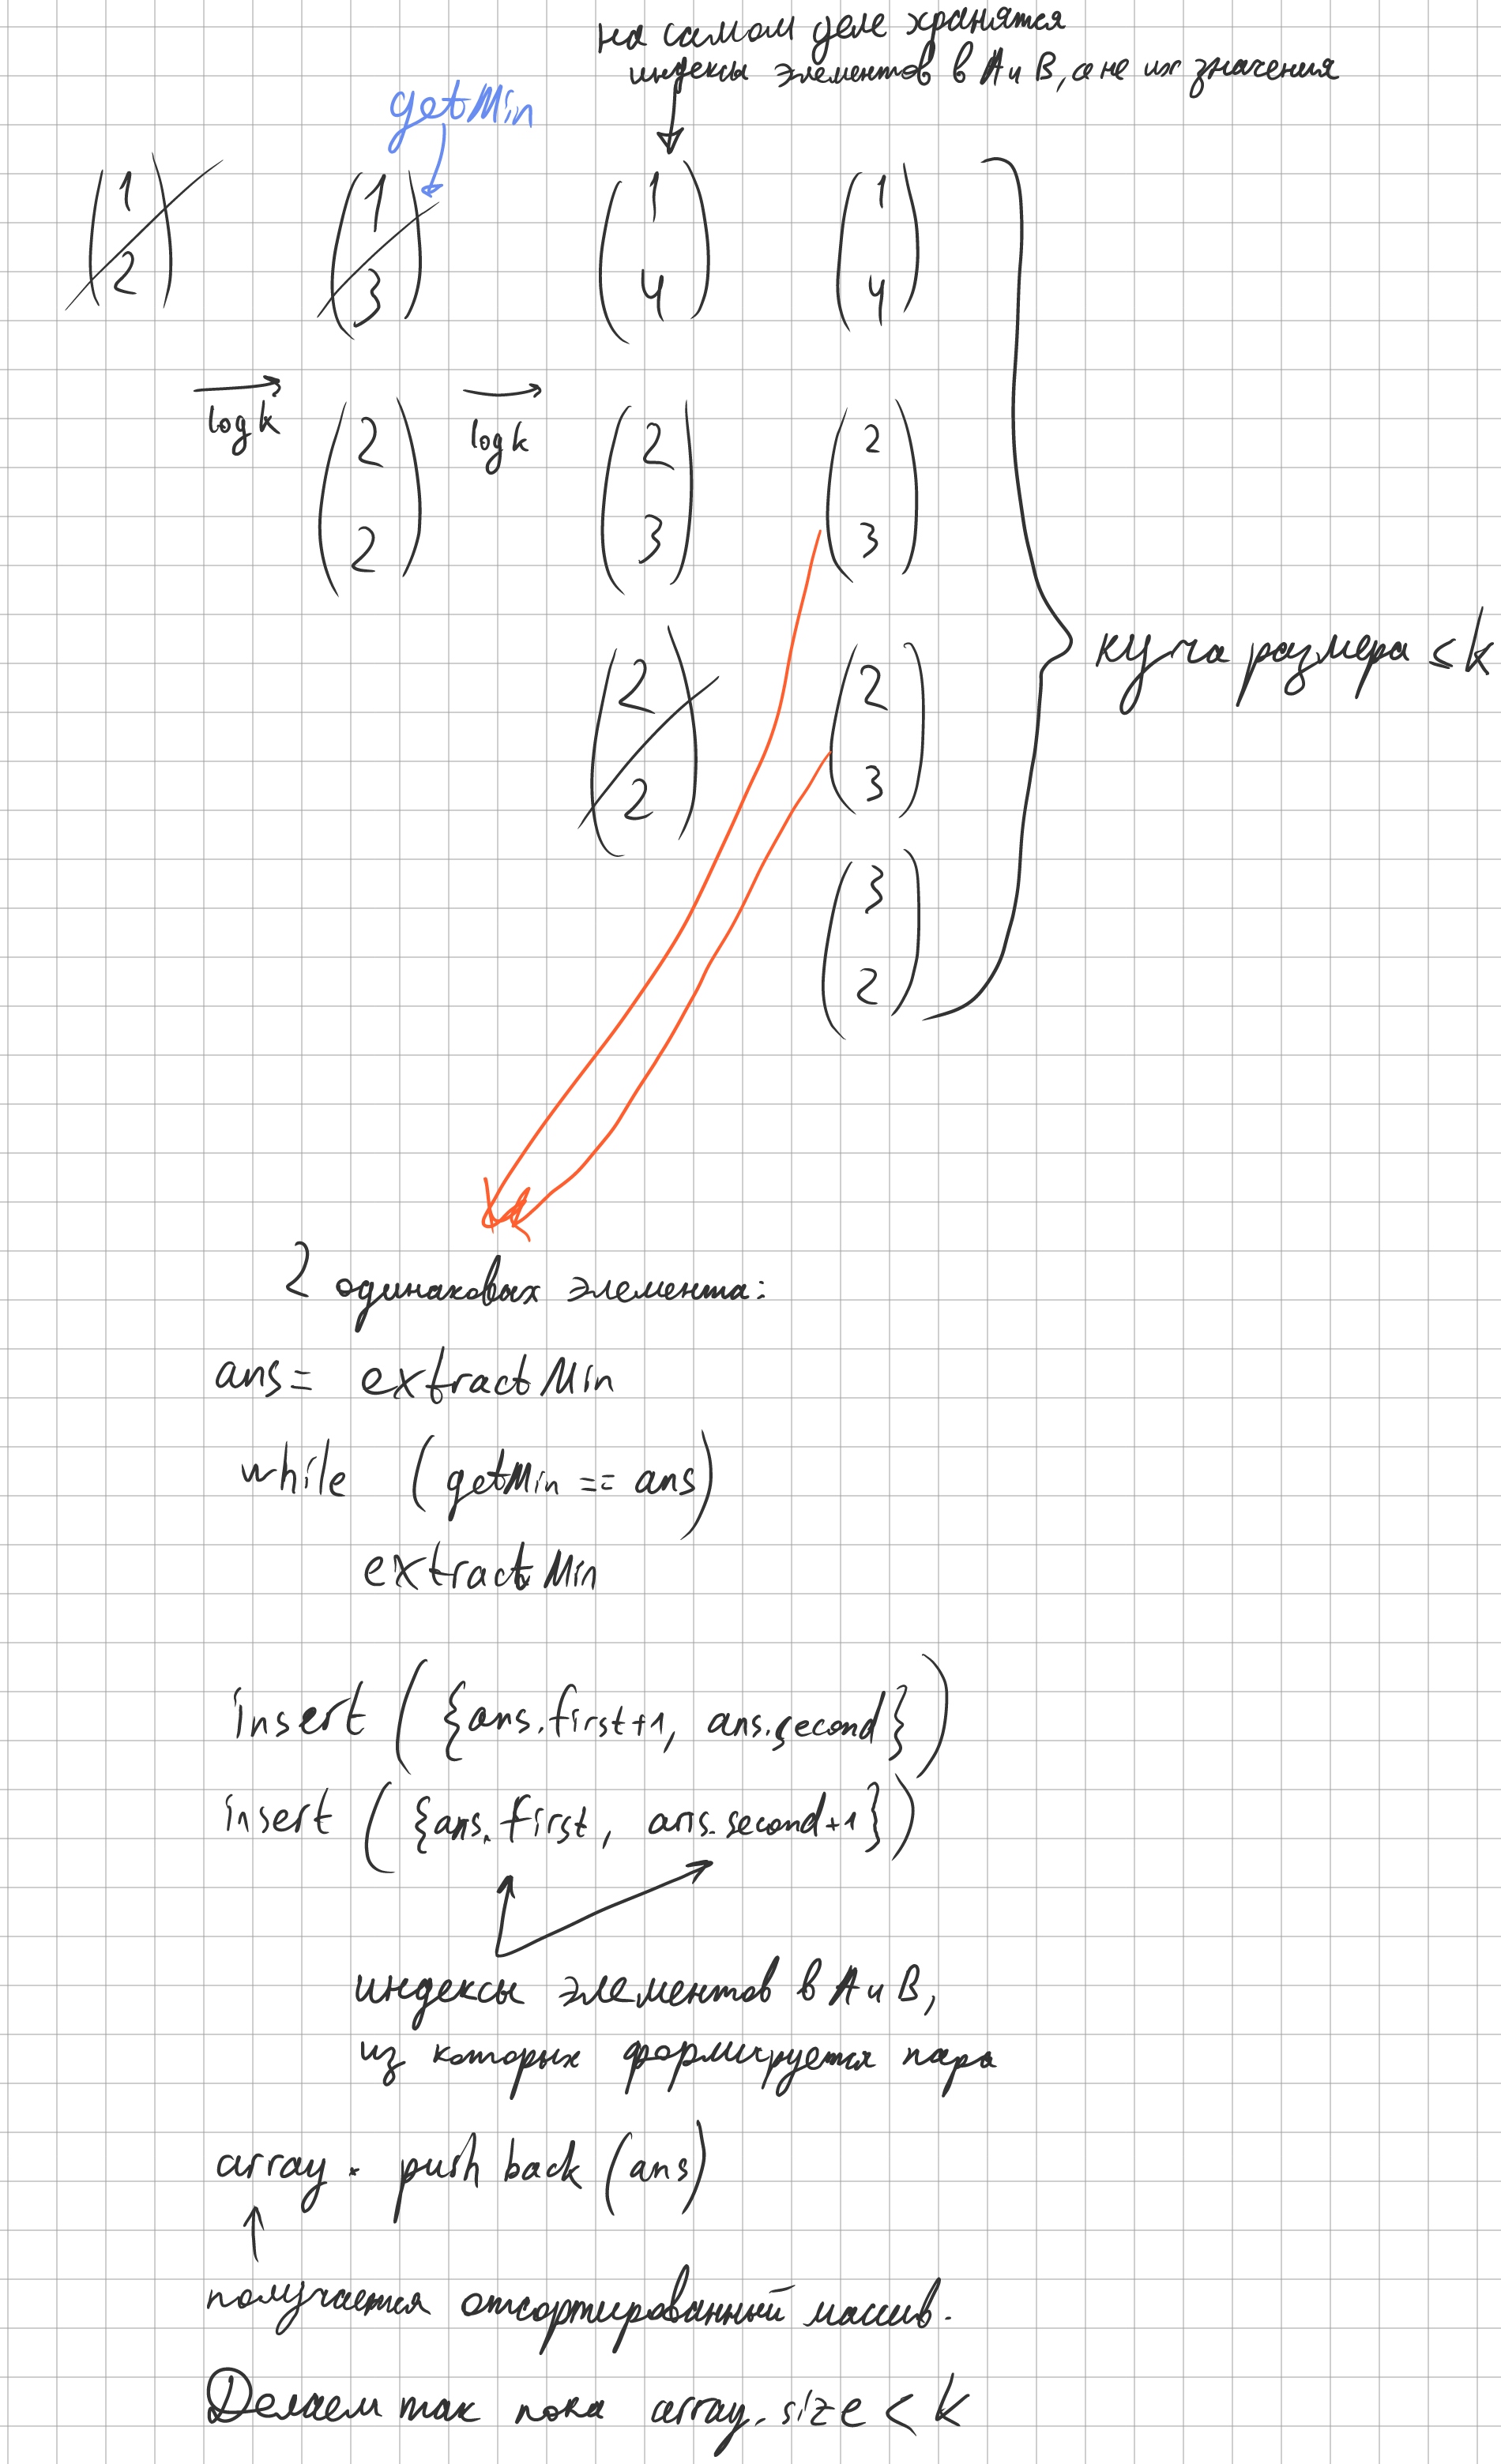 на самом деле хранятся
индексы элементов в A и B, а не их значения
getMin
1 1 1 1
2 3 4 4
log k 2 log k 2 2
2 3 3
2 2
куча размера ≤ k
2 3
3
2
2 одинаковых элемента:
ans = extractMin
while (getMin == ans)
extractMin
insert ({ans.first+1, ans.second})
insert ({ans.first, ans.second+1})
индексы элементов в A и B,
из которых формируется пара
array. push back (ans)
получается отсортированный массив.
Делаем так пока array.size < k